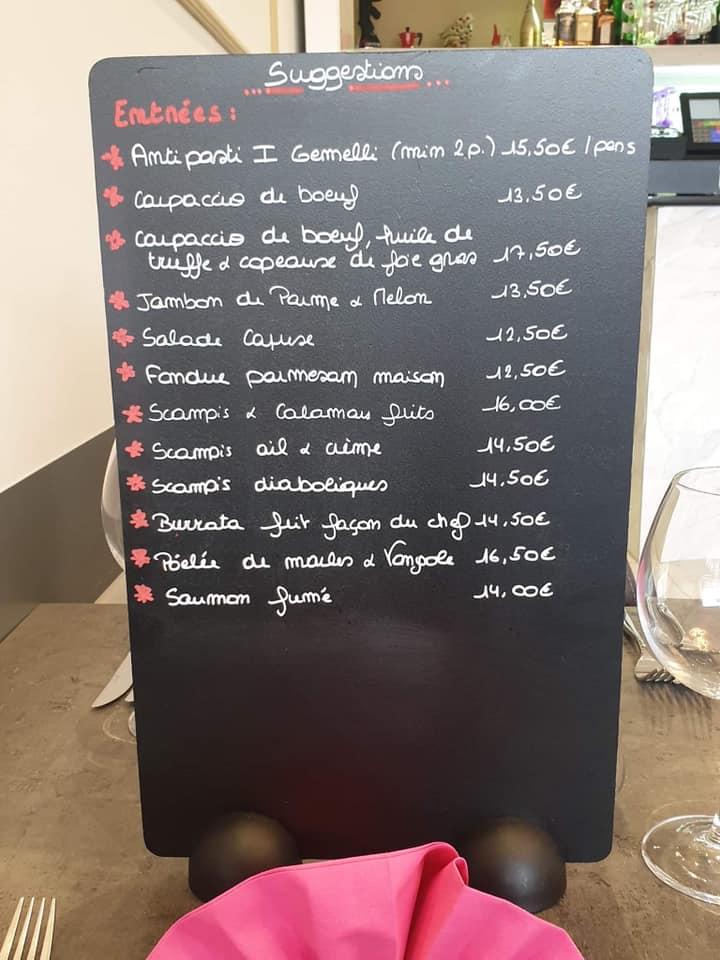 Suggestions
Entrées :
Antipasti I Gemelli (min 2p.) 15,50€ / pers
Carpaccio de boeuf 13,50€
Carpaccio de boeuf, huile de
truffe & copeaux de foie gras 17,50€
Jambon de Parme & Melon 13,50€
Salade Caprese 12,50€
Fondue parmesan maison 12,50€
Scampis & Calamars frits 16,00€
Scampis ail & crème 14,50€
Scampis diaboliques 14,50€
Burrata frit façon du chef 14,50€
Poêlée de moules & Vongole 16,50€
Saumon fumé 14,00€